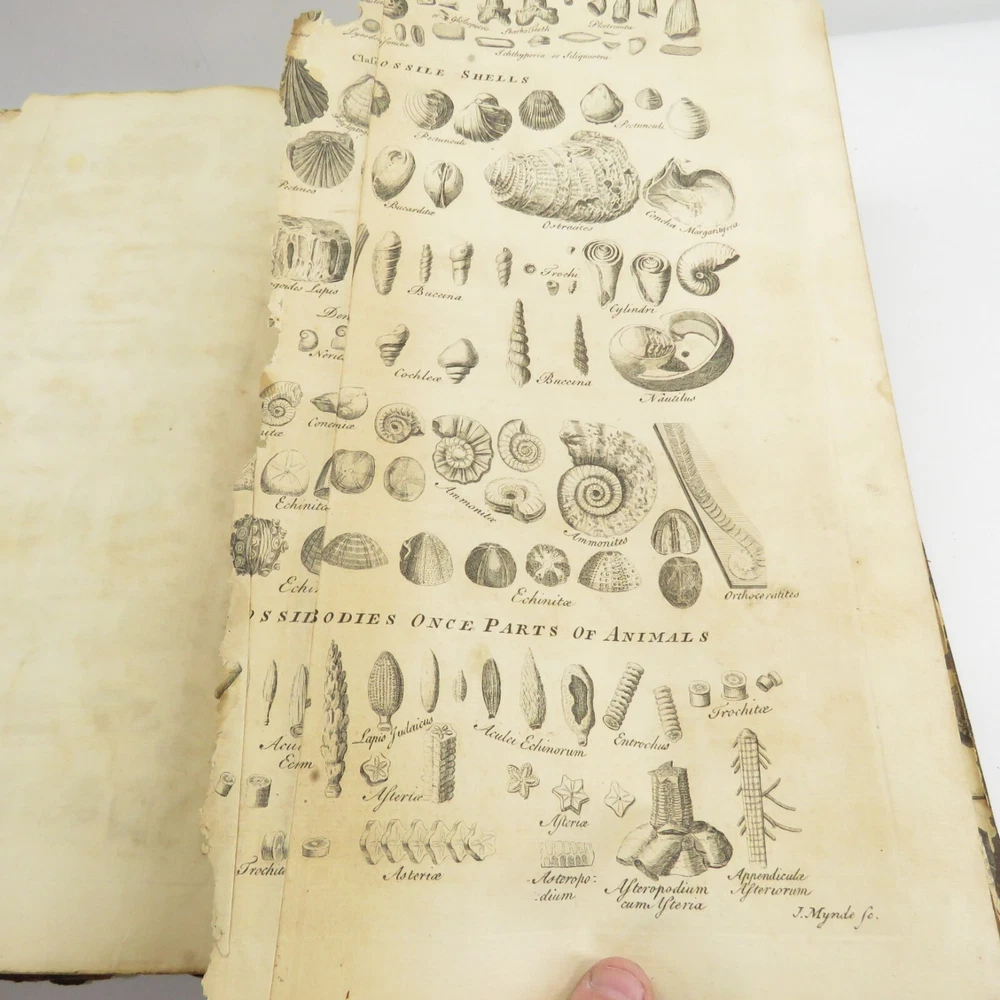 Ichthyperia or Siliquastra
OSSILE SHELLS
Pectunculi
Pectunculi
Pectines
Bucarditæ
Ostracites
Concha Margaritifera
goides Lapis
Buccina
Trochi
Cylindri
Cochleæ
Buccina
Nautilus
itæ
Conemiæ
Echinitæ
Ammonitæ
Ammonites
Echinitæ
Orthoceratites
OSSIBODIES ONCE PARTS OF ANIMALS
Lapis Judaicus
Aculei Echinorum
Entrochus
Trochitæ
Asteriæ
Asteriæ
Trochitæ
Asteriæ
Asteropo-
dium
Asteropodium
cum Asteria
Appendiculæ
Asteriorum
J. Mynde sc.